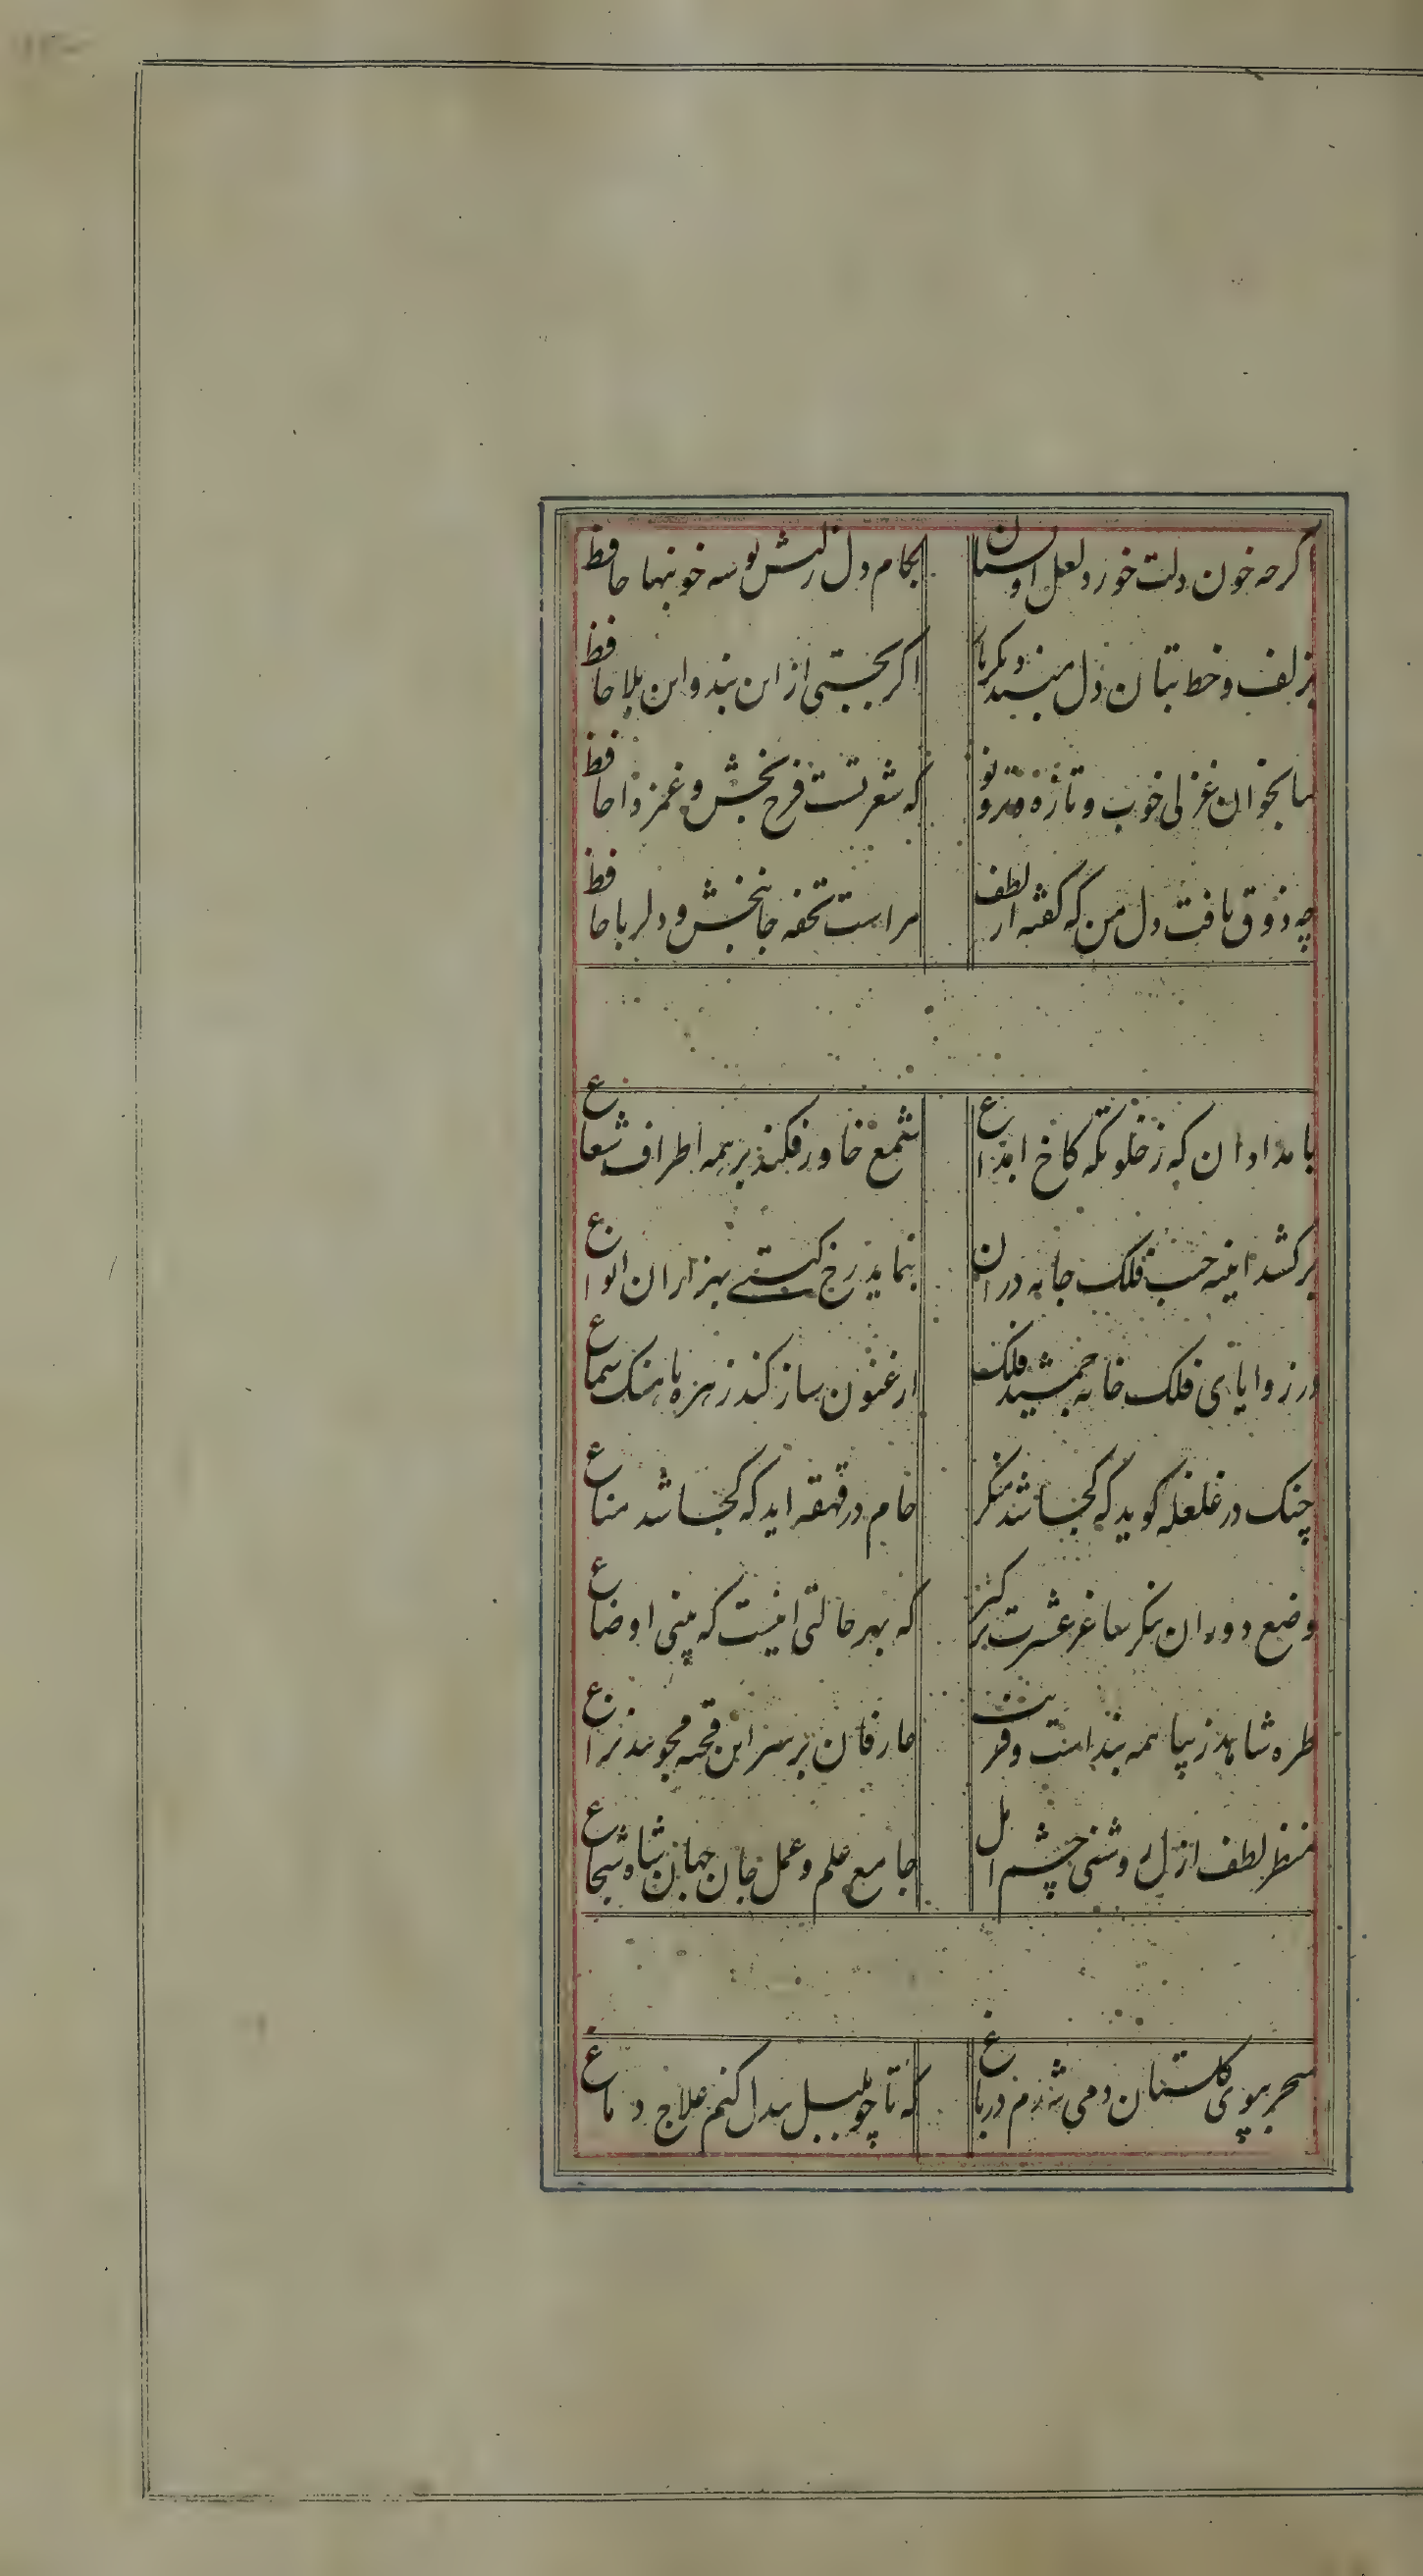 اگرچه خون دلت خورد لعل او بستان
بکام دل ز لبش بوسه خونبها حافظ
بزلف و خط بتان دل مبند دیگر بار
اگر بجستی از این بند و این بلا حافظ
بیا بخوان غزلی خوب و تازه و تر و نو
که شعر تست فرح بخش و غمزدا حافظ
چه ذوق یافت دل من که گفته از لطف
مراست تحفه جانبخش و دلربا حافظ
بامدادان که ز خلوتگه کاخ ابداع
شمع خاور فکند بر همه اطراف شعاع
برکشد اینه جیب فلک جابه در ان
بنماید رخ گیتی بهزاران انواع
در زوایای فلک خانه جمشید فلک
ارغنون ساز کند زهره باهنک سماع
چنک در غلغله کوید که کجا شد منکر
جام در قهقه اید که کجا شد مناع
وضع دوران بنکر ساغر عشرت بر کیر
که بهر حالتی اینست که بینی اوضاع
طره شاهد زیبا همه بند است و فریب
عارفان بر سر این قحبه مجویند نزاع
منظر لطف ازل روشنی چشم امل
جامع علم و عمل جان جهان شاه شجاع
سحر ببوی کلستان دمی شدم در باغ
که تا چو بلبل بیدل کنم علاج دماغ